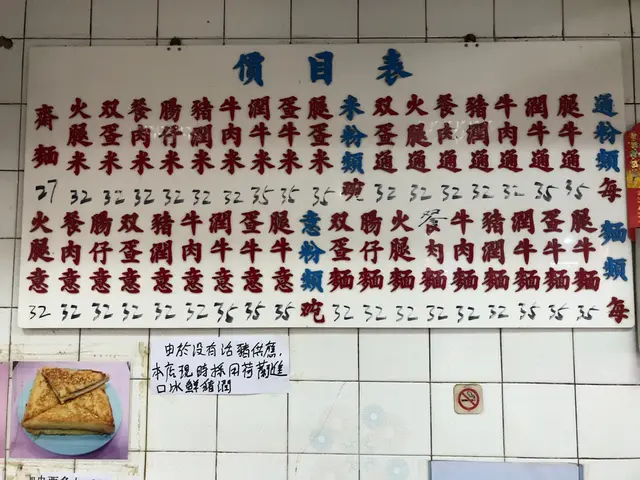 價目表
通粉類每
腿牛通 35
潤牛通 35
牛肉通 32
豬潤通 32
餐肉通 32
火腿通 32
双蛋通 32
米粉類碗
腿蛋米 35
蛋牛米 35
潤牛米 35
牛肉米 32
豬潤米 32
腸仔米 32
餐肉米 32
双蛋米 32
火腿米 32
齋麵 27
麵類每
腿牛麵 35
蛋牛麵 35
潤牛麵 35
豬潤麵 32
牛肉麵 32
餐肉麵 32
火腿麵 32
腸仔麵 32
双蛋麵 32
意粉類碗
腿牛意 35
蛋牛意 35
潤牛意 35
牛肉意 32
豬潤意 32
双蛋意 32
腸仔意 32
餐肉意 32
火腿意 32
由於沒有活豬供應,
本店現時採用荷蘭進
口冰鮮豬潤